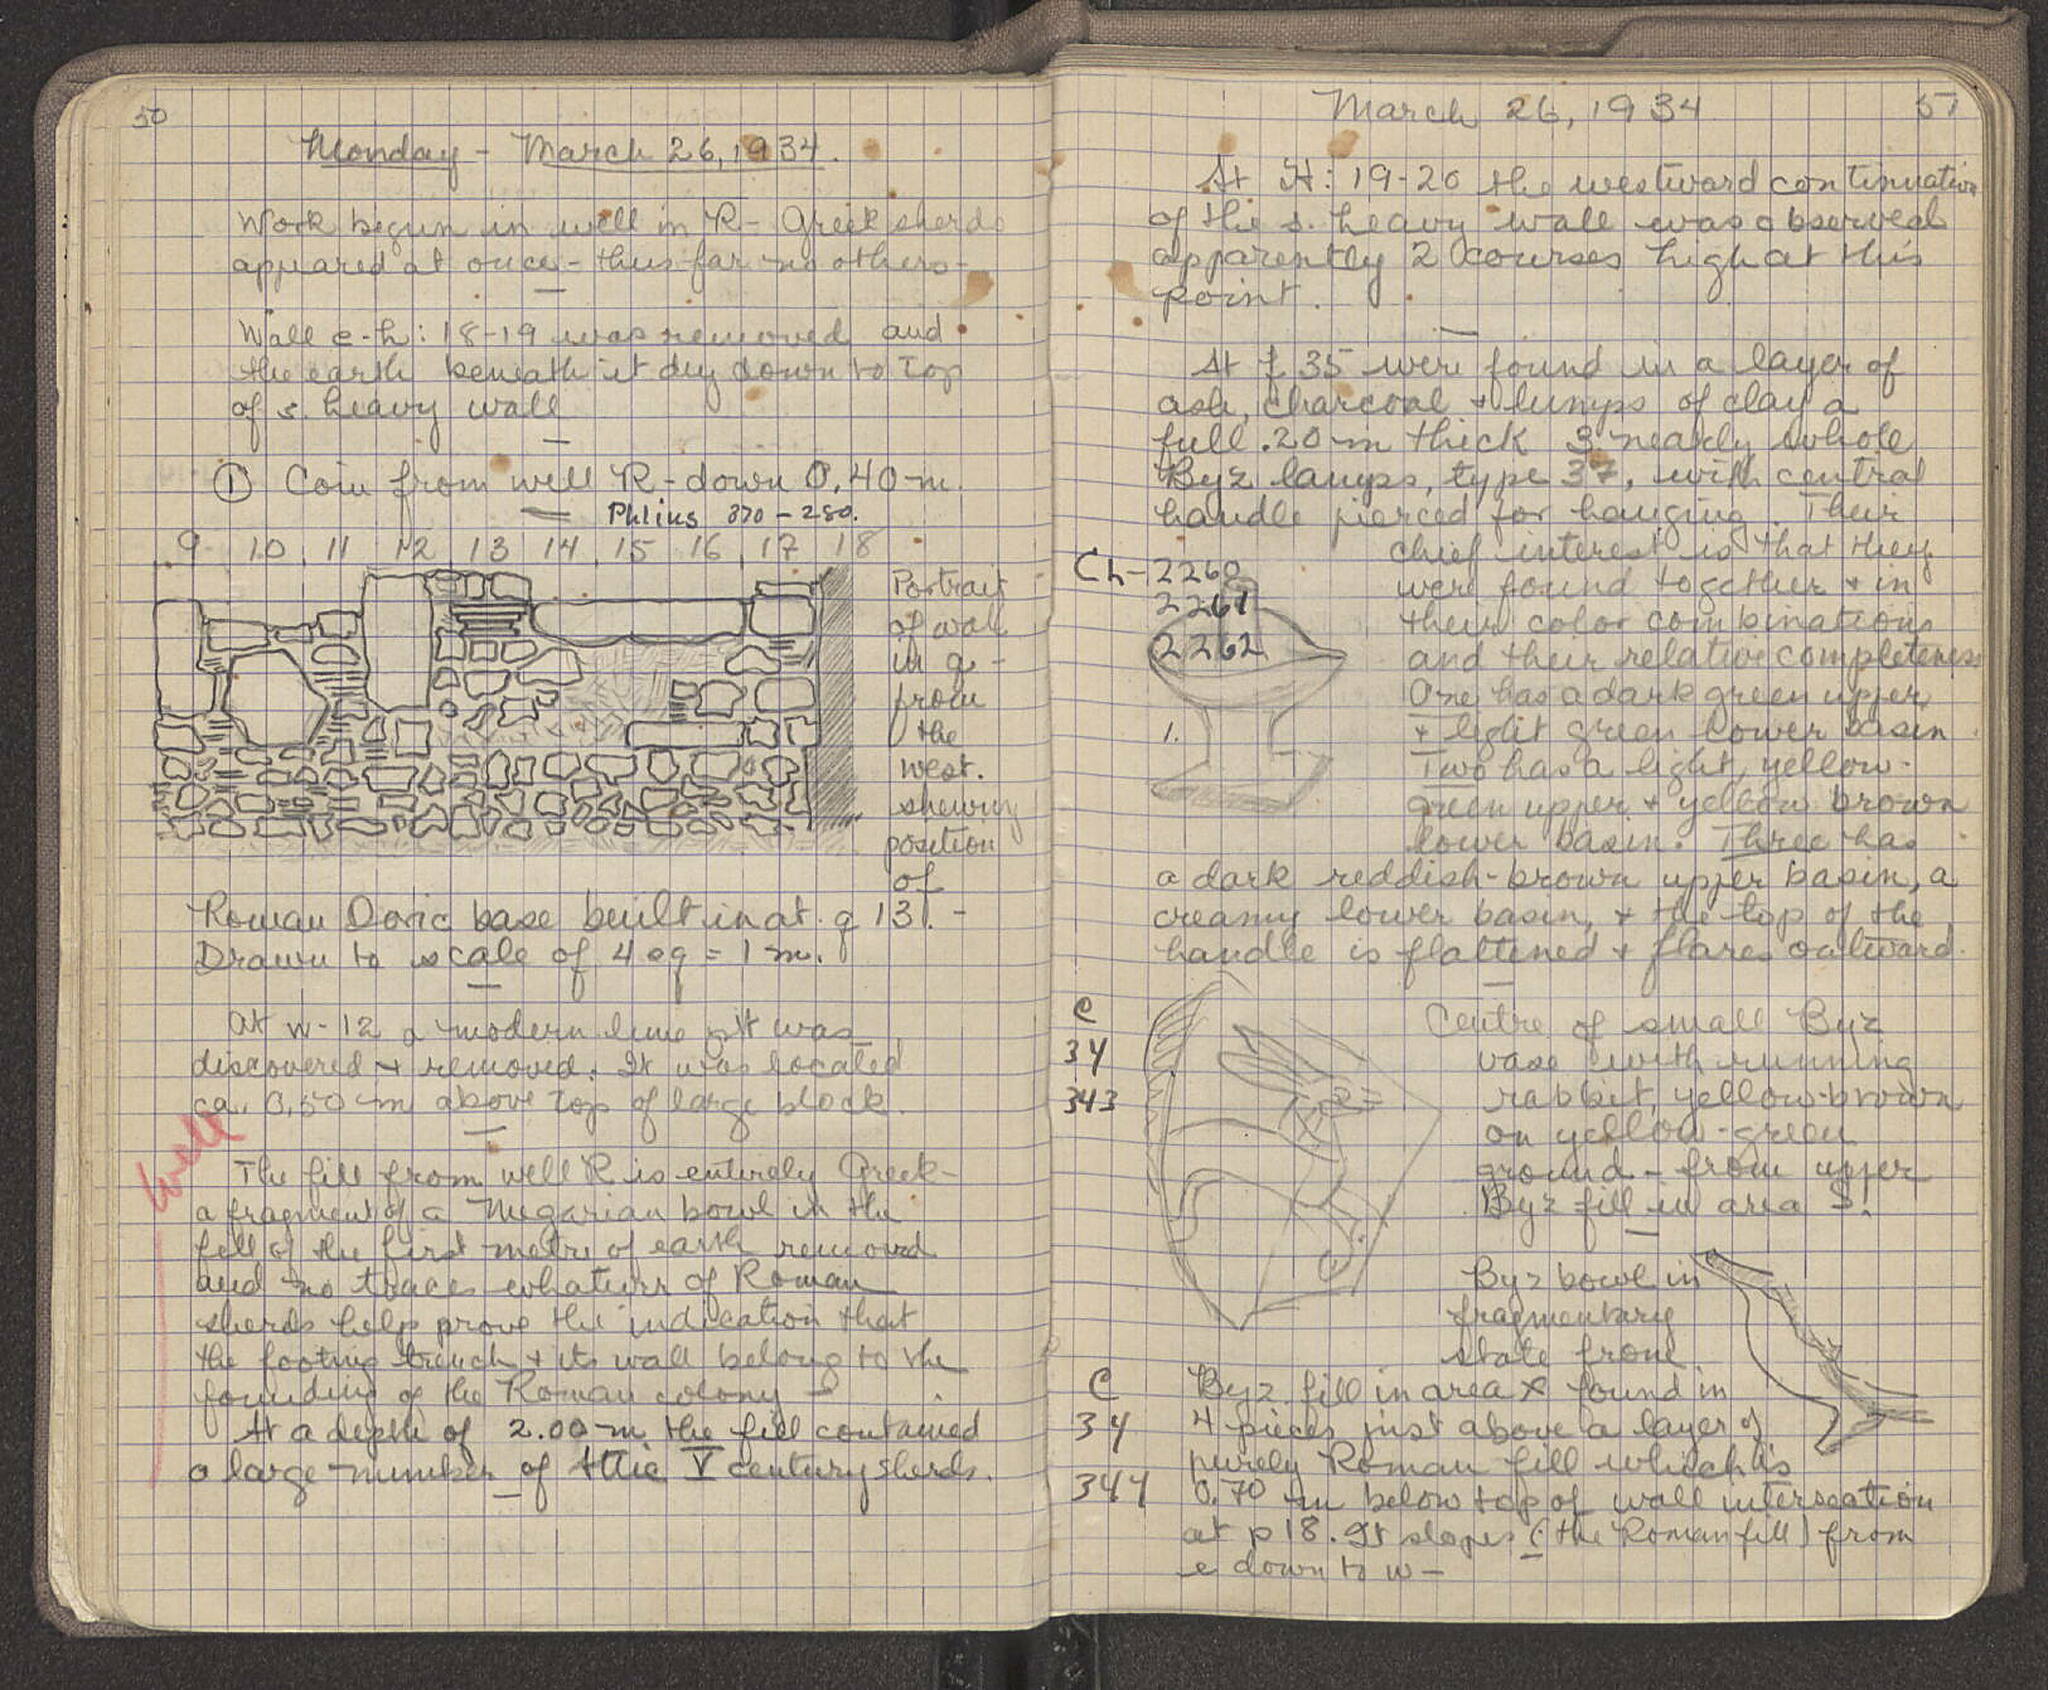 50
Monday - March 26, 1934.
Work begun in well in R - Greek sherds
appeared at once - thus far no others -
Wall e-h: 18-19 was removed and
the earth beneath it dug down to top
of s. heavy wall
① Coin from well R - down 0.40 m.
Phlius 370 - 280.
9 10 11 12 13 14 15 16 17 18
Portrait
of wall
in q -
from
the
west.
shewing
position
of
Roman Doric base built in at q 13. -
Drawn to scale of 4 sq = 1 m.
At w-12 a modern lime pit was
discovered + removed. It was located
ca. 0,50 m above top of large block.
well
The fill from well R is entirely Greek -
a fragment of a Megarian bowl in the
fill of the first metre of earth removed
and no traces whatever of Roman
sherds help prove the indication that
the footing trench + its wall belong to the
founding of the Roman colony -
At a depth of 2.00 m the fill contained
a large number of Attic V century sherds.
March 26, 1934
51
At H: 19-20 the westward continuation
of the s. heavy wall was observed
apparently 2 courses high at this
point.
At f 35 were found in a layer of
ash, charcoal + lumps of clay a
full .20 m thick 3 nearly whole
Byz lamps, type 37, with central
handle pierced for hanging. Their
chief interest is that they
were found together + in
their color combinations
and their relative completeness
One has a dark green upper
+ light green lower basin.
Two has a light, yellow-
green upper + yellow brown
lower basin. Three has
a dark reddish-brown upper basin, a
creamy lower basin, + the top of the
handle is flattened + flares outward.
Ch-2260
2261
2262
1.
C
34
343
Centre of small Byz
vase with running
rabbit, yellow-brown
on yellow-green
ground - from upper
Byz fill in area S!
C
34
344
Byz bowl in
fragmentary
state from
Byz fill in area X found in
4 pieces just above a layer of
purely Roman fill which is
0.70 m below top of wall intersection
at p 18. It slopes (the Roman fill) from
e down to w -